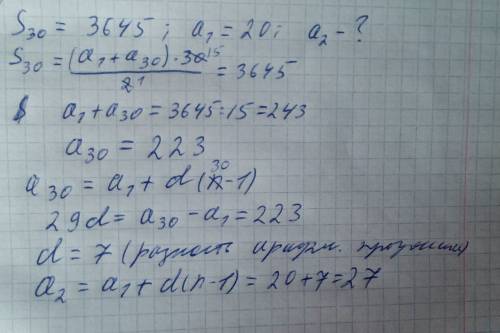 S₃₀ = 3645; a₁ = 20; a₂ - ?
S₃₀ = (a₁ + a₃₀) · 30 15 / 2 1 = 3645
a₁ + a₃₀ = 3645 : 15 = 243
a₃₀ = 223
a₃₀ = a₁ + d(n 30 - 1)
29d = a₃₀ - a₁ = 223
d = 7 (разность арифм. прогрессии)
a₂ = a₁ + d(n-1) = 20 + 7 = 27